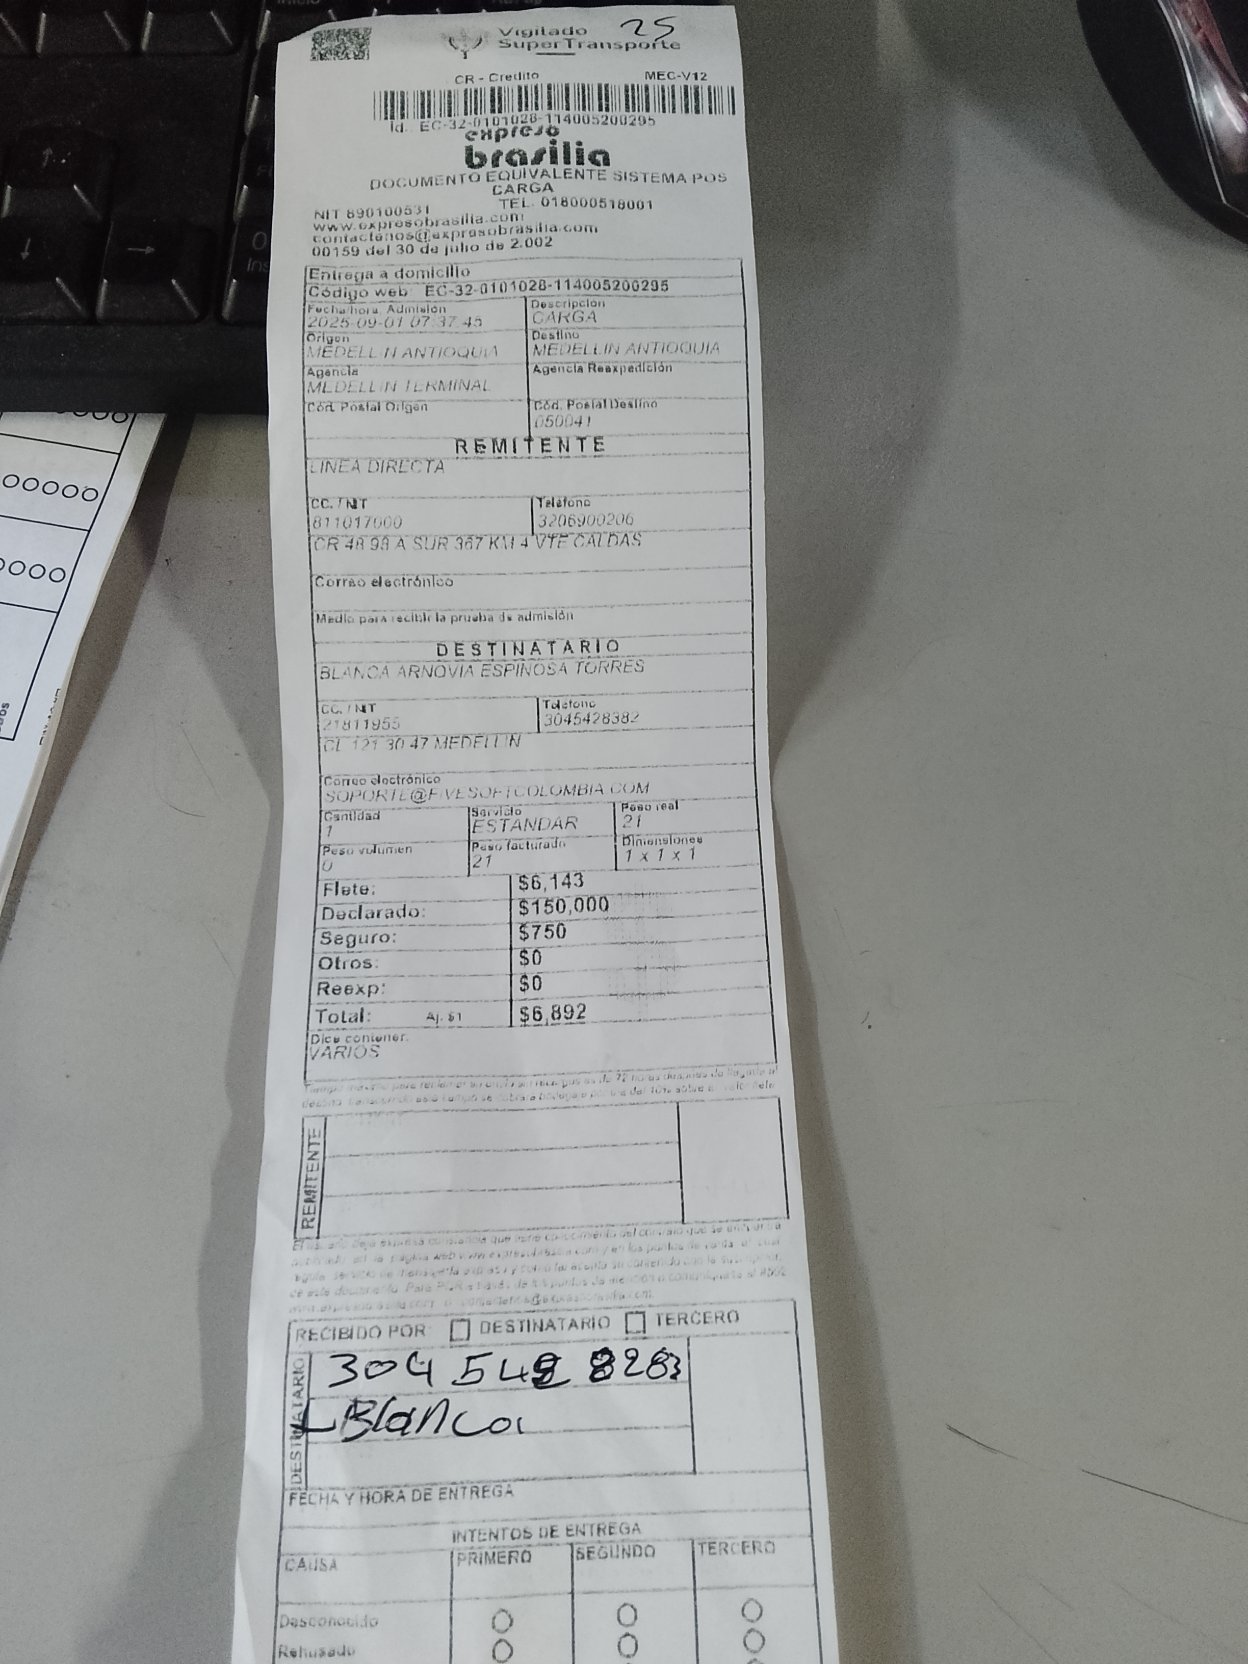 25
Vigilado
SuperTransporte
CR - Credito MEC-V12
Id.: EC-32-0101028-114005200295
expreso
brasilia
DOCUMENTO EQUIVALENTE SISTEMA POS
CARGA
NIT 890100531 TEL. 018000518001
www.expresobrasilia.com
contactanos@expresobrasilia.com
00159 del 30 de julio de 2.002
Entrega a domicilio
Código web: EC-32-0101028-114005200295
Fecha/hora. Admisión Descripción
2025-09-01 07:37:45 CARGA
Origen Destino
MEDELLIN ANTIOQUIA MEDELLIN ANTIOQUIA
Agencia Agencia Reexpedición
MEDELLIN TERMINAL
Cód. Postal Origen Cód. Postal Destino
050041
REMITENTE
LINEA DIRECTA
CC. / NIT Teléfono
811017000 3206900206
CR 48 98 A SUR 367 KM 4 VTE CALDAS
Correo electrónico
Medio para recibir la prueba de admisión
DESTINATARIO
BLANCA ARNOVIA ESPINOSA TORRES
CC. / NIT Teléfono
21811955 3045428382
CL 121 30 47 MEDELLIN
Correo electrónico
SOPORTE@FIVESOFTCOLOMBIA.COM
Cantidad Servicio Peso real
1 ESTANDAR 21
Peso volumen Peso facturado Dimensiones
0 21 1 x 1 x 1
Flete: $6,143
Declarado: $150,000
Seguro: $750
Otros: $0
Reexp: $0
Total: Aj. $1 $6,892
Dice contener:
VARIOS
REMITENTE
RECIBIDO POR: DESTINATARIO TERCERO
DESTINATARIO
304 542 8283
Blanca
FECHA Y HORA DE ENTREGA
INTENTOS DE ENTREGA
CAUSA PRIMERO SEGUNDO TERCERO
Desconocido
Rehusado